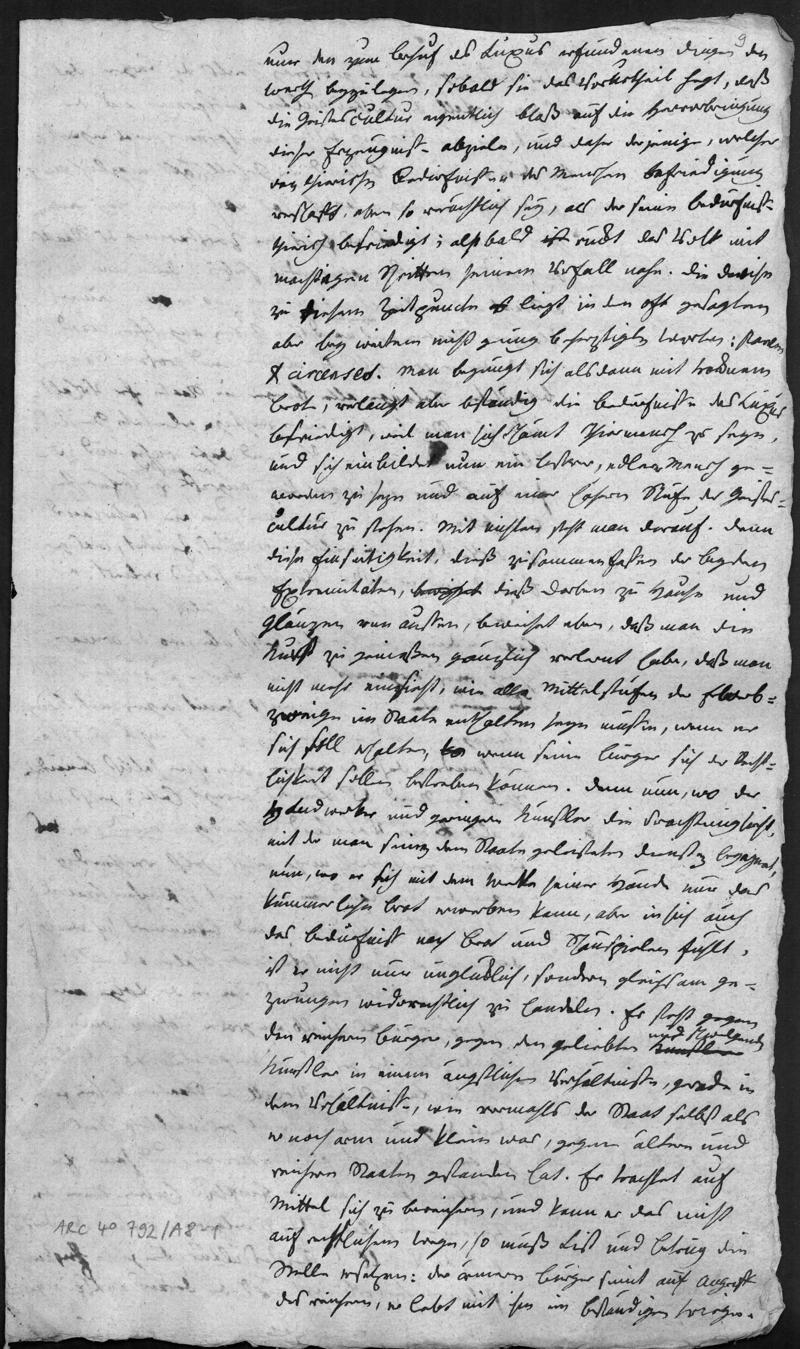 9
nur den zum Behuf des Luxus erfundenen Dingen den
Werth beyzulegen, sobald sie das Vorurtheil hegt, daß
die Geistescultur eigentlich bloß auf die Hervorbringung
dieser Erzeugniße abziele, und daher derjenige, welcher
den thierischen Bedürfnißen des Menschen Befriedigung
verschafft, eben so verächtlich sey, als der seine Bedürfniße
thierisch befriedigt; alsbald ist rückt das Volk mit
mächtigen Schritten seinem Verfall nahe. Die Devise
zu diesem Zeitpuncte liegt in den oft gesagten
aber bey weitem nicht genug beherzigten Worten: panem
& circenses. Man begnügt sich alsdann mit trockenem
Brot, verlangt aber beständig die Bedürfniße des Luxus
befriedigt, weil man sich schämt Thiermensch zu seyn,
und sich einbildet nun ein besserer, edlerer Mensch ge-
worden zu seyn und auf einer höhern Stufe der Geistes-
cultur zu stehen. Mit nichten steht man darauf. Denn
diese Einseitigkeit, dieß Zusammenfaßen der beyden
Extremitäten, beweiset dieß Darben zu Hause und
Glänzen von außen, beweiset eben, daß man die
Kunst zu genießen gänzlich verlernt habe, daß man
nicht mehr einsieht, wie alle Mittelstufen der Erwerb-
zweige im Staate enthalten seyn müßen, wenn er
sich soll erhalten, wenn seine Bürger sich der Recht-
lichkeit sollen bestreben können. Denn nun, wo der
Handwerker und geringere Künstler die Verachtung sieht,
mit der man seinen dem Staate geleisteten Diensten begegnet,
nun, wo er sich mit dem Werke seiner Hände nur das
kümmerliche Brot erwerben kann, aber in sich auch
das Bedürfniß nach Brot und Schauspielen fühlt,
ist er nicht nur unglücklich, sondern gleichsam ge-
zwungen widerrechtlich zu handeln. Er steht gegen
den reichern Bürger, gegen den geliebten und schwelgenden Künstler
Künstler in einem ängstlichen Verhältniße, gerade in
dem Verhältniße, wie vormahls der Staat selbst als
er noch arm und klein war, gegen ältere und
reichere Staaten gestanden hat. Er trachtet auf
Mittel sich zu bereichern, und kann er das nicht
auf rechtlichem Wege, so muß List und Betrug die
Stelle ersetzen: der ärmere Bürger sinnt auf Angriff
des reichern, er lebt mit ihm im beständigen Kriege.
ARC 4° 792/A8-1